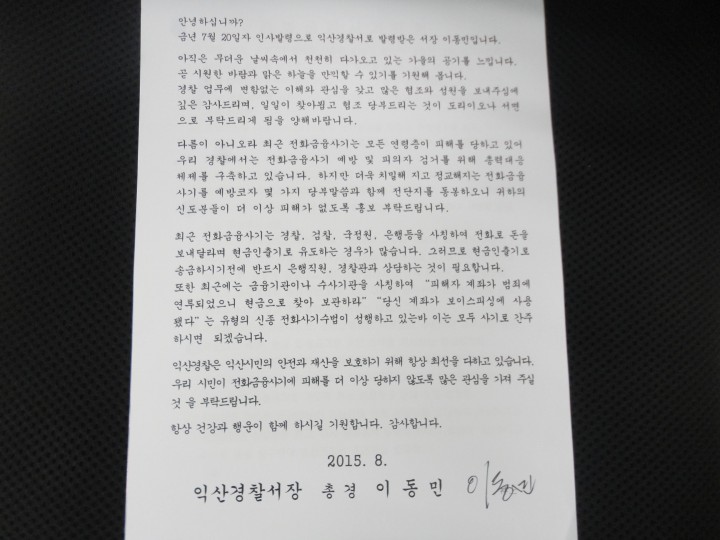 안녕하십니까?
금년 7월 20일자 인사발령으로 익산경찰서로 발령받은 서장 이동민입니다.
아직은 무더운 날씨속에서 천천히 다가오고 있는 가을의 공기를 느낍니다.
곧 시원한 바람과 맑은 하늘을 만끽할 수 있기를 기원해 봅니다.
경찰 업무에 변함없는 이해와 관심을 갖고 많은 협조와 성원을 보내주심에
깊은 감사드리며, 일일이 찾아뵙고 협조 당부드리는 것이 도리이오나 서면
으로 부탁드리게 됨을 양해바랍니다.
다름이 아니오라 최근 전화금융사기는 모든 연령층이 피해를 당하고 있어
우리 경찰에서는 전화금융사기 예방 및 피의자 검거를 위해 총력대응
체제를 구축하고 있습니다. 하지만 더욱 치밀해 지고 정교해지는 전화금융
사기를 예방코자 몇 가지 당부말씀과 함께 전단지를 동봉하오니 귀하의
신도분들이 더 이상 피해가 없도록 홍보 부탁드립니다.
최근 전화금융사기는 경찰, 검찰, 국정원, 은행등을 사칭하여 전화로 돈을
보내달라며 현금인출기로 유도하는 경우가 많습니다. 그러므로 현금인출기로
송금하시기전에 반드시 은행직원, 경찰관과 상담하는 것이 필요합니다.
또한 최근에는 금융기관이나 수사기관을 사칭하여 “피해자 계좌가 범죄에
연루되었으니 현금으로 찾아 보관하라” “당신 계좌가 보이스피싱에 사용
됐다” 는 유형의 신종 전화사기수법이 성행하고 있는바 이는 모두 사기로 간주
하시면 되겠습니다.
익산경찰은 익산시민의 안전과 재산을 보호하기 위해 항상 최선을 다하고 있습니다.
우리 시민이 전화금융사기에 피해를 더 이상 당하지 않도록 많은 관심을 가져 주실
것 을 부탁드립니다.
항상 건강과 행운이 함께 하시길 기원합니다. 감사합니다.
2015. 8.
익산경찰서장 총경 이동민 이동민